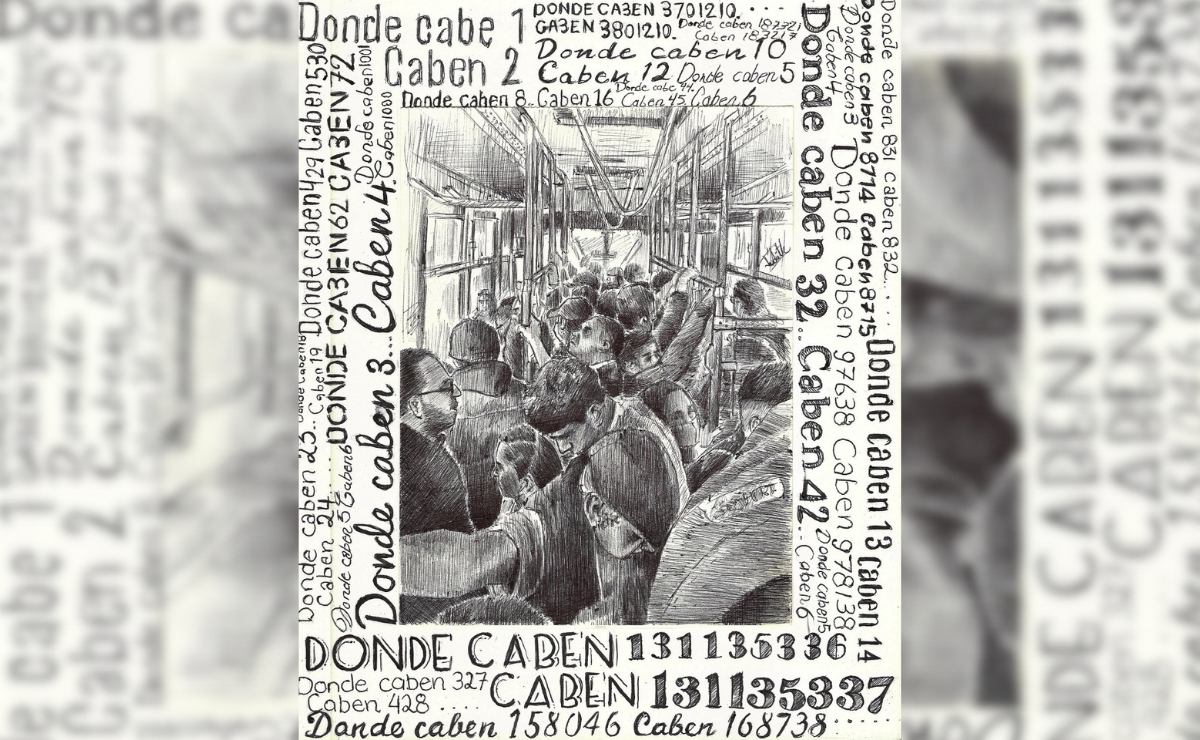 Donde cabe 1
Caben 2
DONDE CABEN 3701210. . . .
CABEN 3801210.
Donde caben 10
Caben 12 Donde caben 5
Donde caben 8.. Caben 16 Caben 45. Caben 6
Donde caben 3... Caben 4.
Donde caben 1001
Caben 1000
DONDE CABEN 62 CABEN 72
Donde caben 429 Caben 530
Caben 19
Donde caben 23..
Caben 24...
Donde caben 5 Caben 6
Donde caben 32.. Caben 42..
Donde caben 5
Caben 6
Donde caben 3
Caben 4
Donde caben 97638 Caben 978138
Donde caben 8714 caben 8715
Donde caben 13 Caben 14
Donde caben 831 caben 832...
DONDE CABEN 131135336
Donde caben 327
Caben 428 ....
CABEN 131135337
Donde caben 158046 Caben 168738......